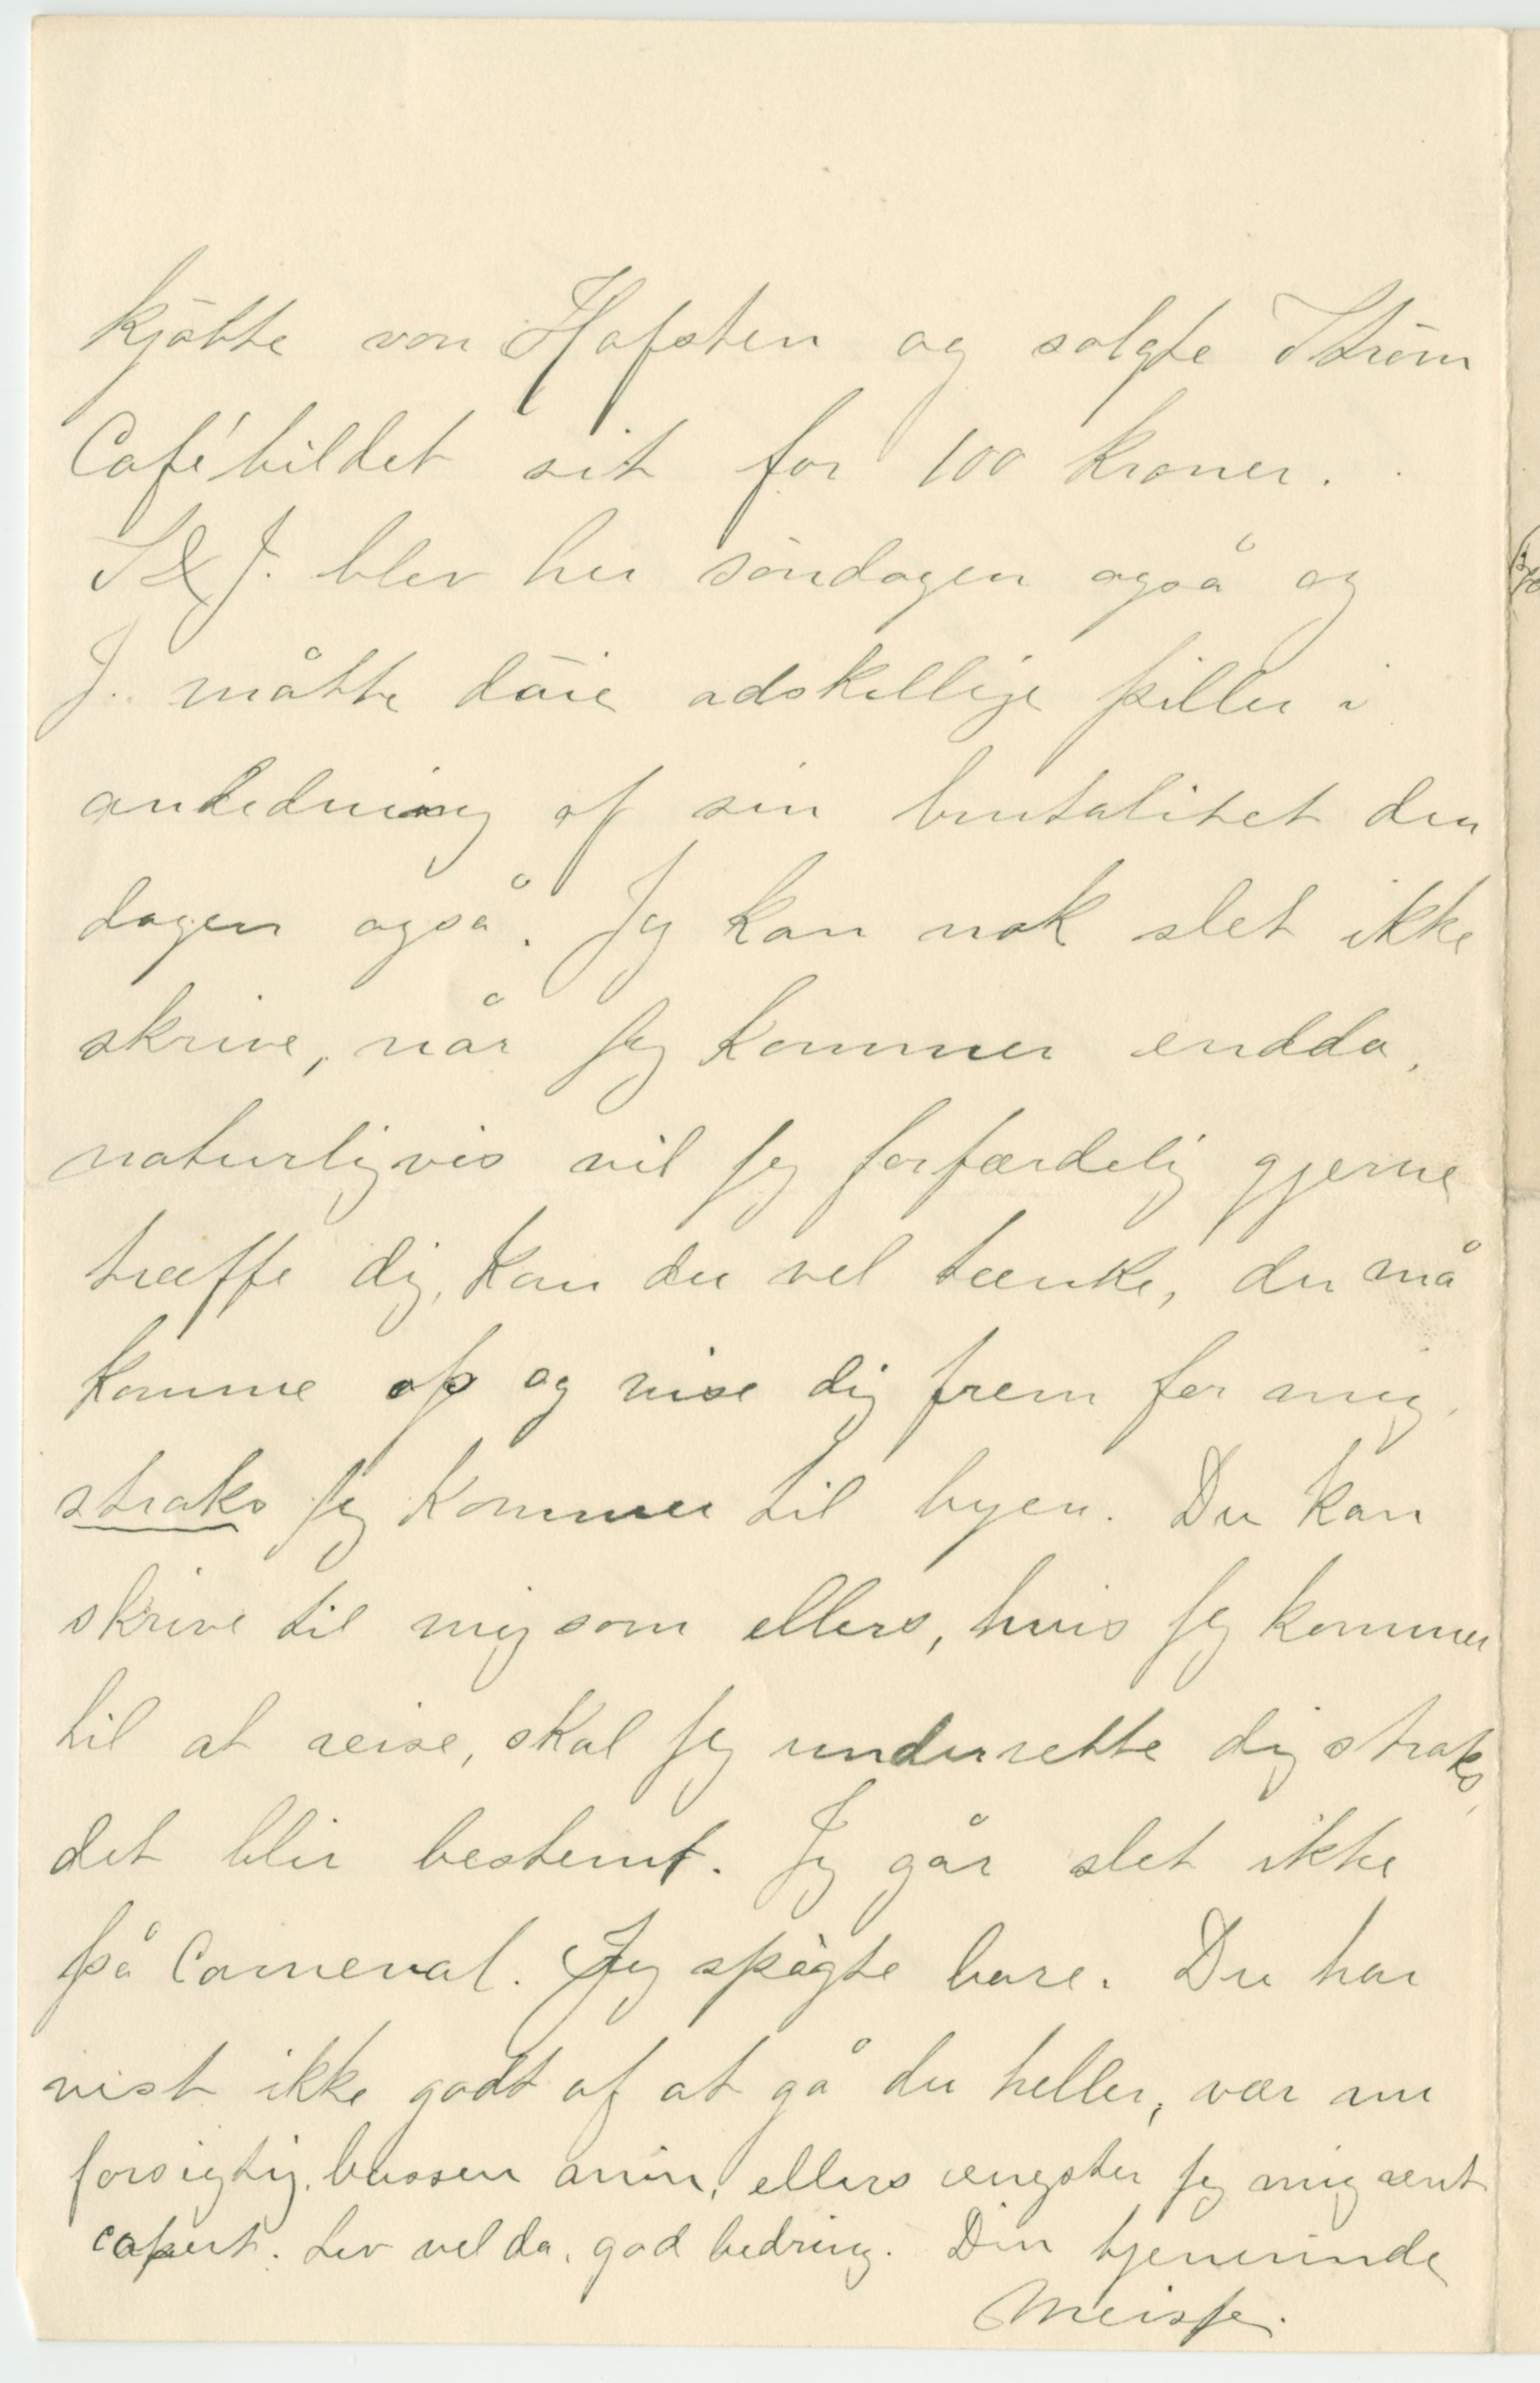 kjøbte von Hafsten og solgte Strøm
Cafébildet sit for 100 kroner.
S & J. blev her søndagen også og
J. måtte døie adskillige piller i
anledning af sin brutalitet den
dagen også. Jeg kan nok slet ikke
skrive, når jeg kommer endda,
naturligvis vil jeg forfærdelig gjerne
træffe dig, kan du vel tænke, du må
komme op og vise dig frem for mig,
straks jeg kommer til byen. Du kan
skrive til mig som ellers, hvis jeg kommer
til at reise, skal jeg underrette dig straks,
det blir bestemt. Jeg går slet ikke
på Carneval. Jeg spøgte bare. Du har
vist ikke godt af at gå du heller, vær nu
forsigtig, bussen min, ellers ængster jeg mig rent
capert. Lev vel da, god bedring. Din tjenerinde
Meisse.